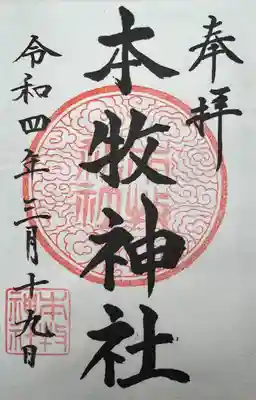 奉拝
本牧神社
令和四年三月十九日
本牧
神社